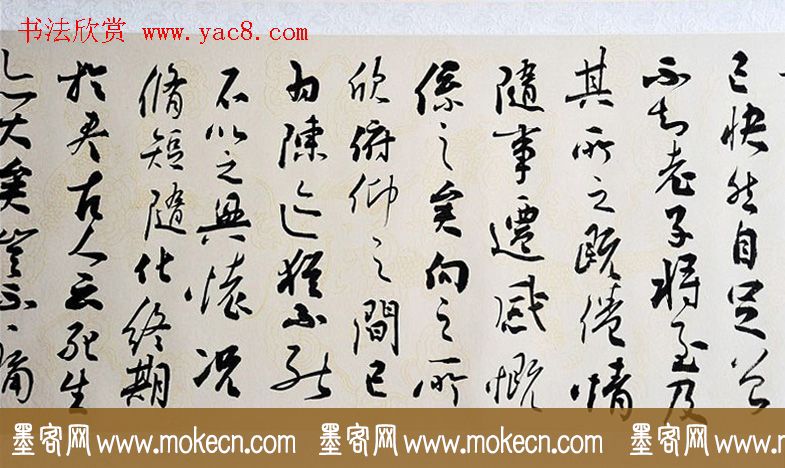 书法欣赏 www.yac8.com
已快然自足曾
不知老之將至及
其所之既倦情
隨事遷感慨
係之矣向之所
欣俯仰之間已
為陳迹猶不能
不以之興懷況
脩短隨化終期
於盡古人云死生
亦大矣豈不痛
墨客网 www.mokecn.com 墨客网 www.mokecn.com 墨客网